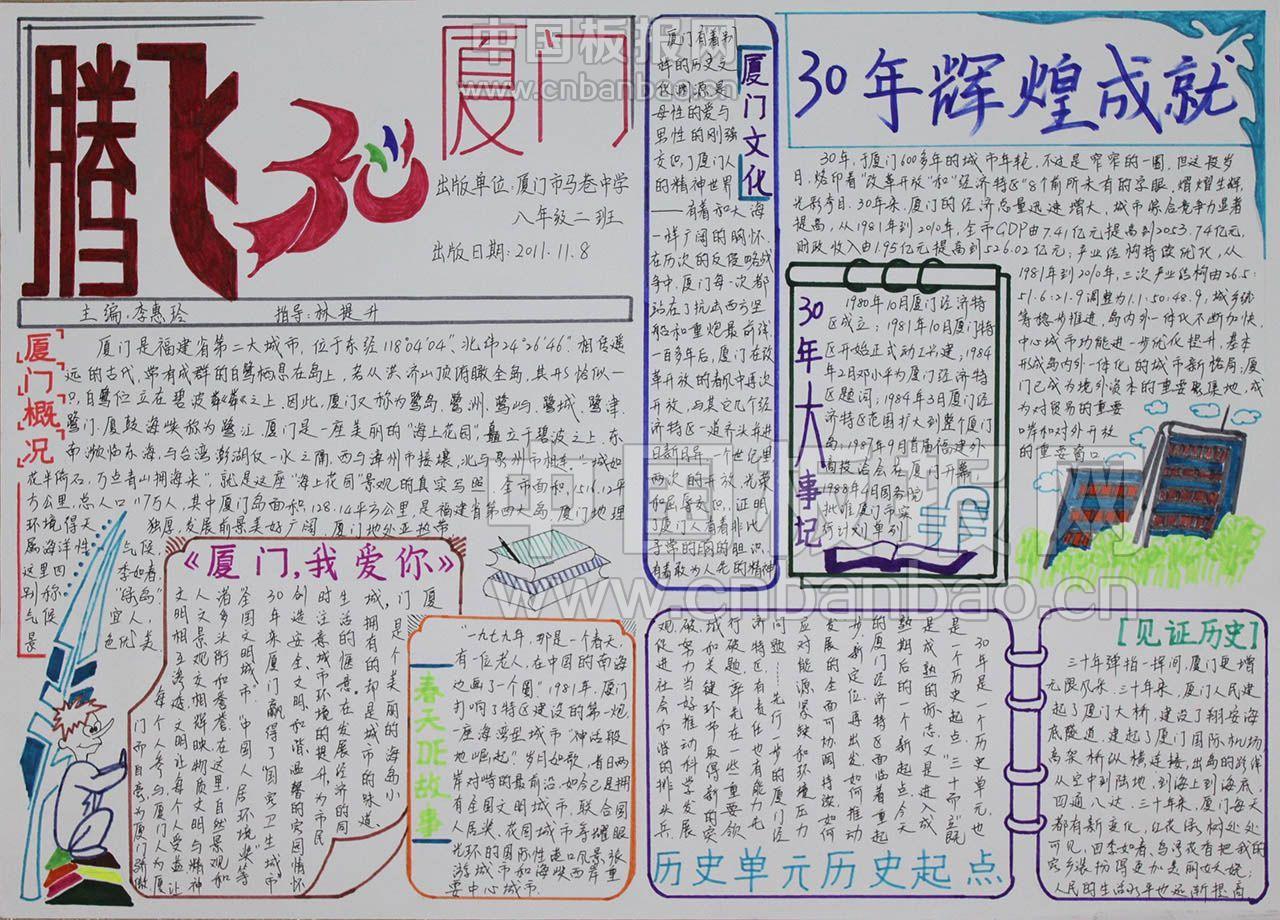 腾飞30 厦门
中国板报网
www.cnbanbao.cn
出版单位:厦门市马巷中学
八年级二班
出版日期:2011.11.8
主编:李惠玲 指导:林提升
厦门概况
厦门是福建省第二大城市,位于东经118°04′04″、北纬24°26′46″.相传遥
远的古代,常有成群的白鹭栖息在岛上,若从洪济山顶俯瞰全岛,其形恰似一
只白鹭伫立在碧波
之上.因此,厦门又称为鹭岛、鹭洲、鹭屿、鹭城、鹭津、
鹭门.厦鼓海峡称为鹭江.厦门是一座美丽的"海上花园",矗立于碧波之上,东
南濒临东海,与台湾澎湖仅一水之隔,西与漳州市接壤,北与泉州市相连.
一城如
花半倚石,万点青山拥海来",就是这座"海上花园"景观的真实写照.全市面积
1516.12平
方公里,总人口117万人,其中厦门岛面积128.14平方公里,是福建省第四大岛.厦门地理
环境得天独厚,发展前景美好广阔.厦门地处亚热带
属海洋性气候,
这里四季如春,
别称"绿岛"
气候宜人,
是
《厦门,我爱你》
厦门,
是个美丽的海岛小
城,拥有的却是城市的味道、
生活的惬意.在发展经济的同
时注意城市环境的提升,为市民
创造安全文明和谐温馨的家园情怀
30年来厦门赢得了"国家卫生城市"
"中国人居环境奖"等
春天DE故事
"一九七九年,那是一个春天,
有一位老人,在中国的南海
边画了一个圈".1981年,厦门
打响了特区建设的第一炮.
一座海滨星城市"神话般
地崛起".岁月如歌,昔日两
岸对峙的最前沿,如今已是拥
有全国文明城市、联合国
人居奖、花园城市等耀眼
光环的国际性港口风景旅
游城市和海峡西岸重
要中心城市.
厦门文化
厦门有着书
样的历史文
化,同源是
母性的爱与
男性的刚强
交织了厦门人
的精神世界
——有着和大海
一样广阔的胸怀.
在历次的反侵略战
争中,厦门每一次都
站在了抗击西方坚
船和重炮最前线.
一百多年后,厦门在改
革开放的春风中再次
开放,与其它几个经
济特区一道齐头并进
日新月异.一个世纪里
两次的开放,光荣
和屈辱交织,证明
了厦门人有着非比
寻常的钢的胆识,
有着敢为人先的精神
30年辉煌成就
30年,于厦门600多年的城市年轮,不过是窄窄的一圈,但这段岁
月,烙印着"改革开放"和"经济特区"8个前所未有的字眼,熠熠生辉,
光彩夺目.30年来,厦门的经济总量迅速增大,城市综合竞争力显著
提高,从1981年到2010年,全市GDP由7.41亿元提高到2053.74亿元,
财政收入由1.95亿元提高到526.02亿元;产业结构持续优化,从
1981年到2010年,三次产业结构由26.5:
51.6:21.9调整为1.1:50:48.9,城乡统
筹稳步推进,岛内外一体化不断加快,
中心城市功能进一步优化提升,基本
形成岛内外一体化的城市新格局;厦
门已成为境外资本的重要聚集地,成
为对贸易的重要
口岸和对外开放
的重要窗口.
30年大事记
1980年10月厦门经济特
区成立;1981年10月厦门特
区开始正式动工兴建;1984
年2月邓小平为厦门经济特
区题词;1984年3月厦门经
济特区范围扩大到整个厦门
岛;1987年9月首届福建外
商投洽会在厦门开幕,
1988年4月国务院
批准厦门市实
行计划单列
书
30年是一个历史单元,也
是一个历史起点."三十而立"既
是成熟的标志又是进入成
熟期后的一个新起点.今天
的厦门经济特区面临着重起
步、新定位、再出发.如何推动
发展的全面可协调持续,如何
应对能源紧缺和环境压力
问题……先行一步的厦门经
济特区有责任也有能力先
行破题,率先在一些重要领
域和关键环节取得新的突
破,努力当好推动科学发展
促进社会和谐的排头兵
历史单元历史起点
[见证历史]
三十年弹指一挥间,厦门更增
无限风采.三十年来,厦门人民建
起了厦门大桥,建设了翔安海
底隧道,建起了厦门国际机场
高架桥纵横连接,出岛的路线
从空中到陆地,到海上到海底,
四通八达.三十年来,厦门每天
都有新变化,红花绿树处处
可见,四季如春,鸟语花香把我的
家乡装扮得更加美丽妖娆;
人民的生活水平也逐渐提高